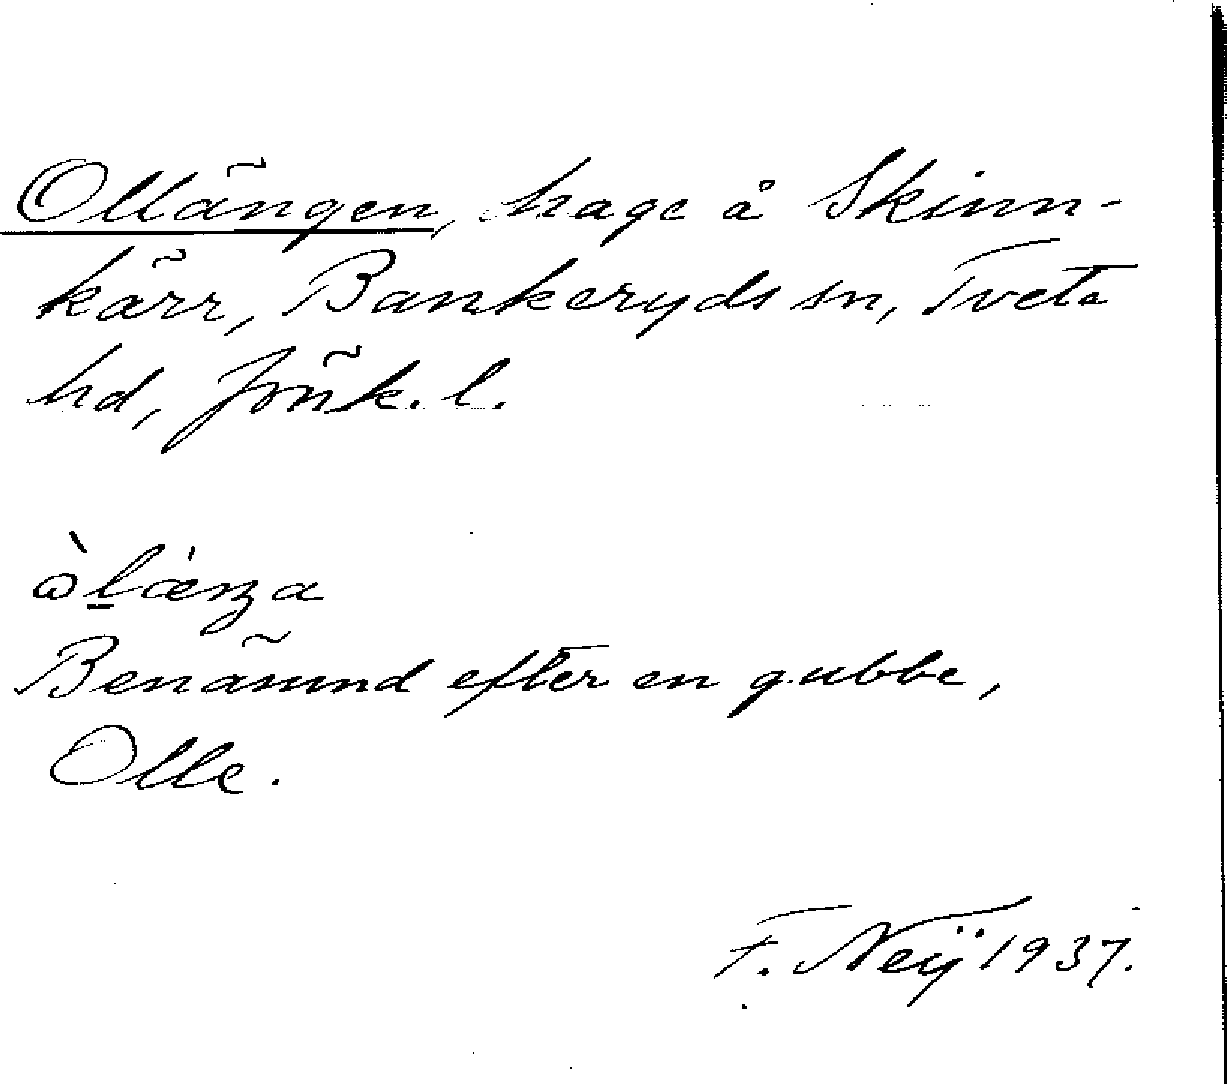 Ollängen, hage å Skinn-
kärr, Bankeryds sn, Tveta
hd, Jönk. l.
Benämnd efter en gubbe,
Olle.
F. Neij 1937.